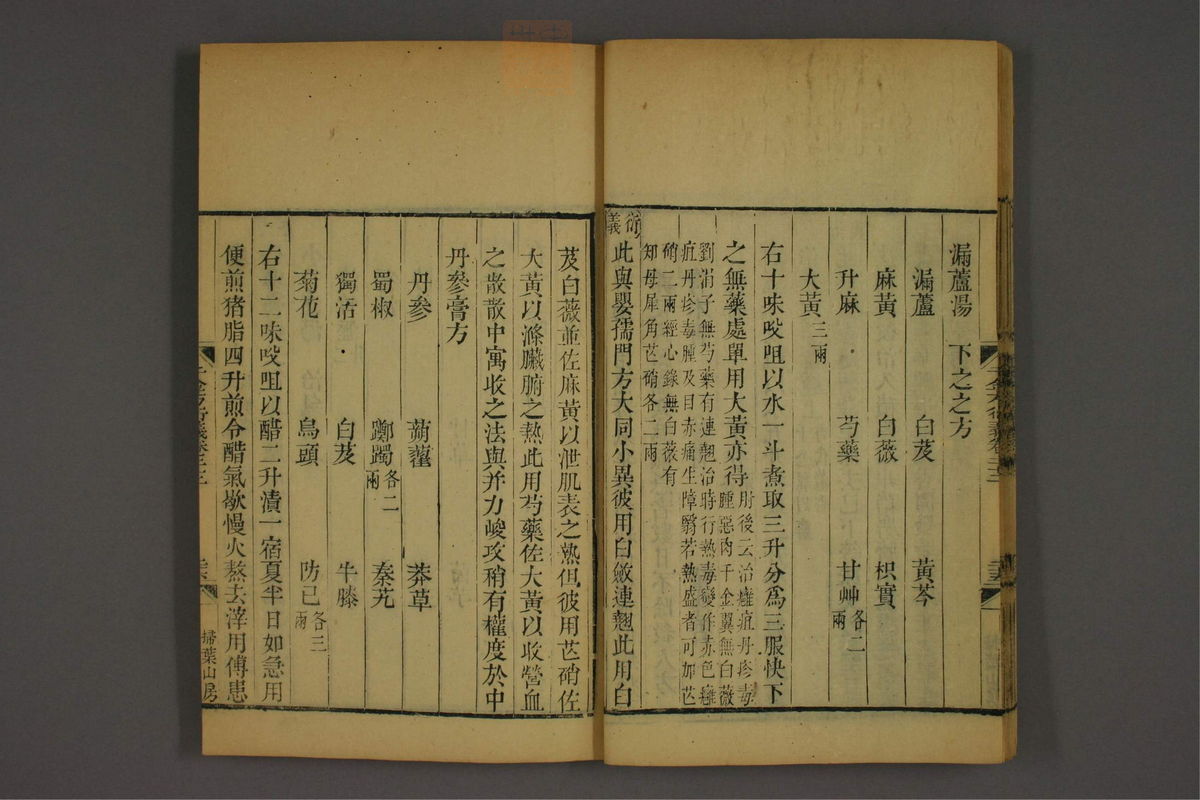 漏蘆湯　下之之方
漏蘆　白芨　黃芩
麻黃　白薇　枳實
升麻　芍藥　甘艸各二兩
大黃三兩
右十味㕮咀以水一斗煮取三升分爲三服快下
之無藥處單用大黃亦得肘後云治癰疽丹疹毒
腫惡肉千金翼無白薇
劉涓子無芍藥有連翹治時行熱毒變作赤色癰
疽丹疹毒腫及目赤痛生障翳若熱盛者可加芒
硝二兩經心錄無白薇有
知母犀角芒硝各二兩
衍義
此與嬰孺門方大同小異彼用白斂連翹此用白
芨白薇並佐麻黃以泄肌表之熱但彼用芒硝佐
大黃以滌臟腑之熱此用芍藥佐大黃以收營血
之散散中寓收之法與并力峻攻稍有權度於中
丹參膏方
丹參　蒴藋　莽草
蜀椒　躑躅各二兩　秦艽
獨活　白芨　牛膝
菊花　烏頭　防己各三兩
右十二味㕮咀以醋二升漬一宿夏半日如急用
便煎猪脂四升煎令醋氣歇慢火熬去滓用傅患
掃葉山房